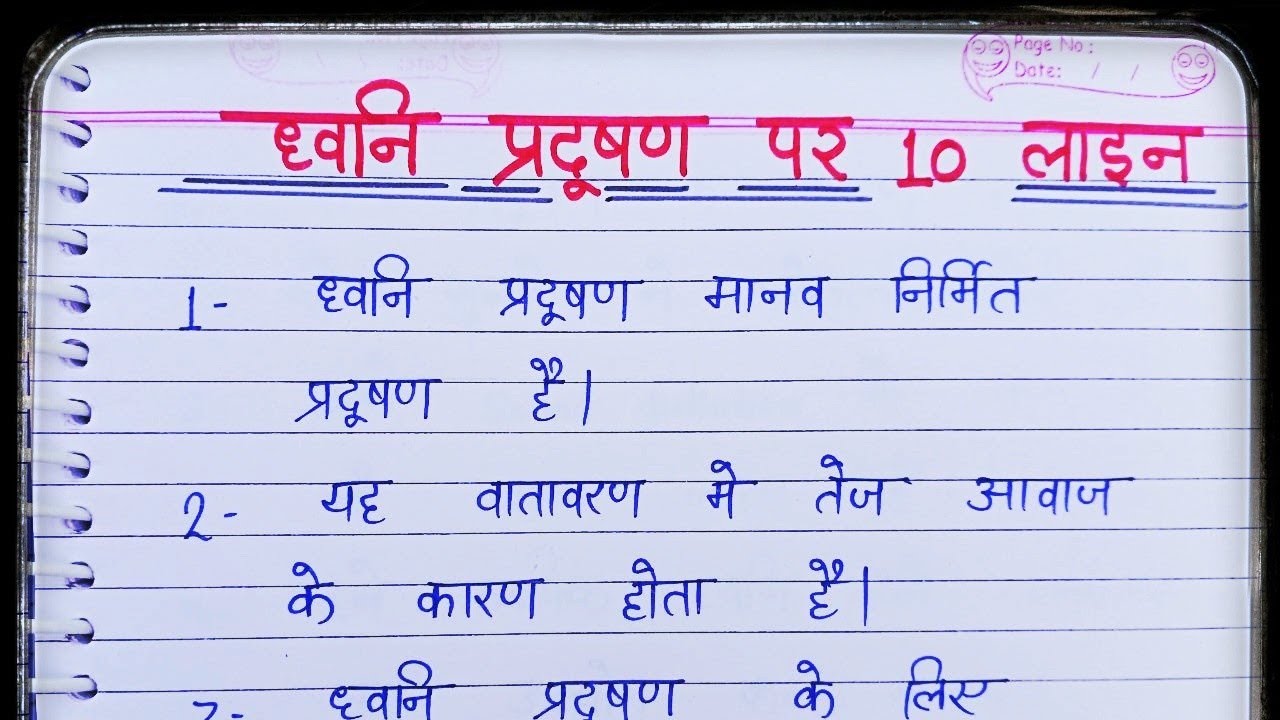 Page No :
Date: / /
ध्वनि प्रदूषण पर 10 लाइन
1- ध्वनि प्रदूषण मानव निर्मित
प्रदूषण है।
2- यह वातावरण मे तेज आवाज
के कारण होता है।
3- ध्वनि प्रदूषण के लिए